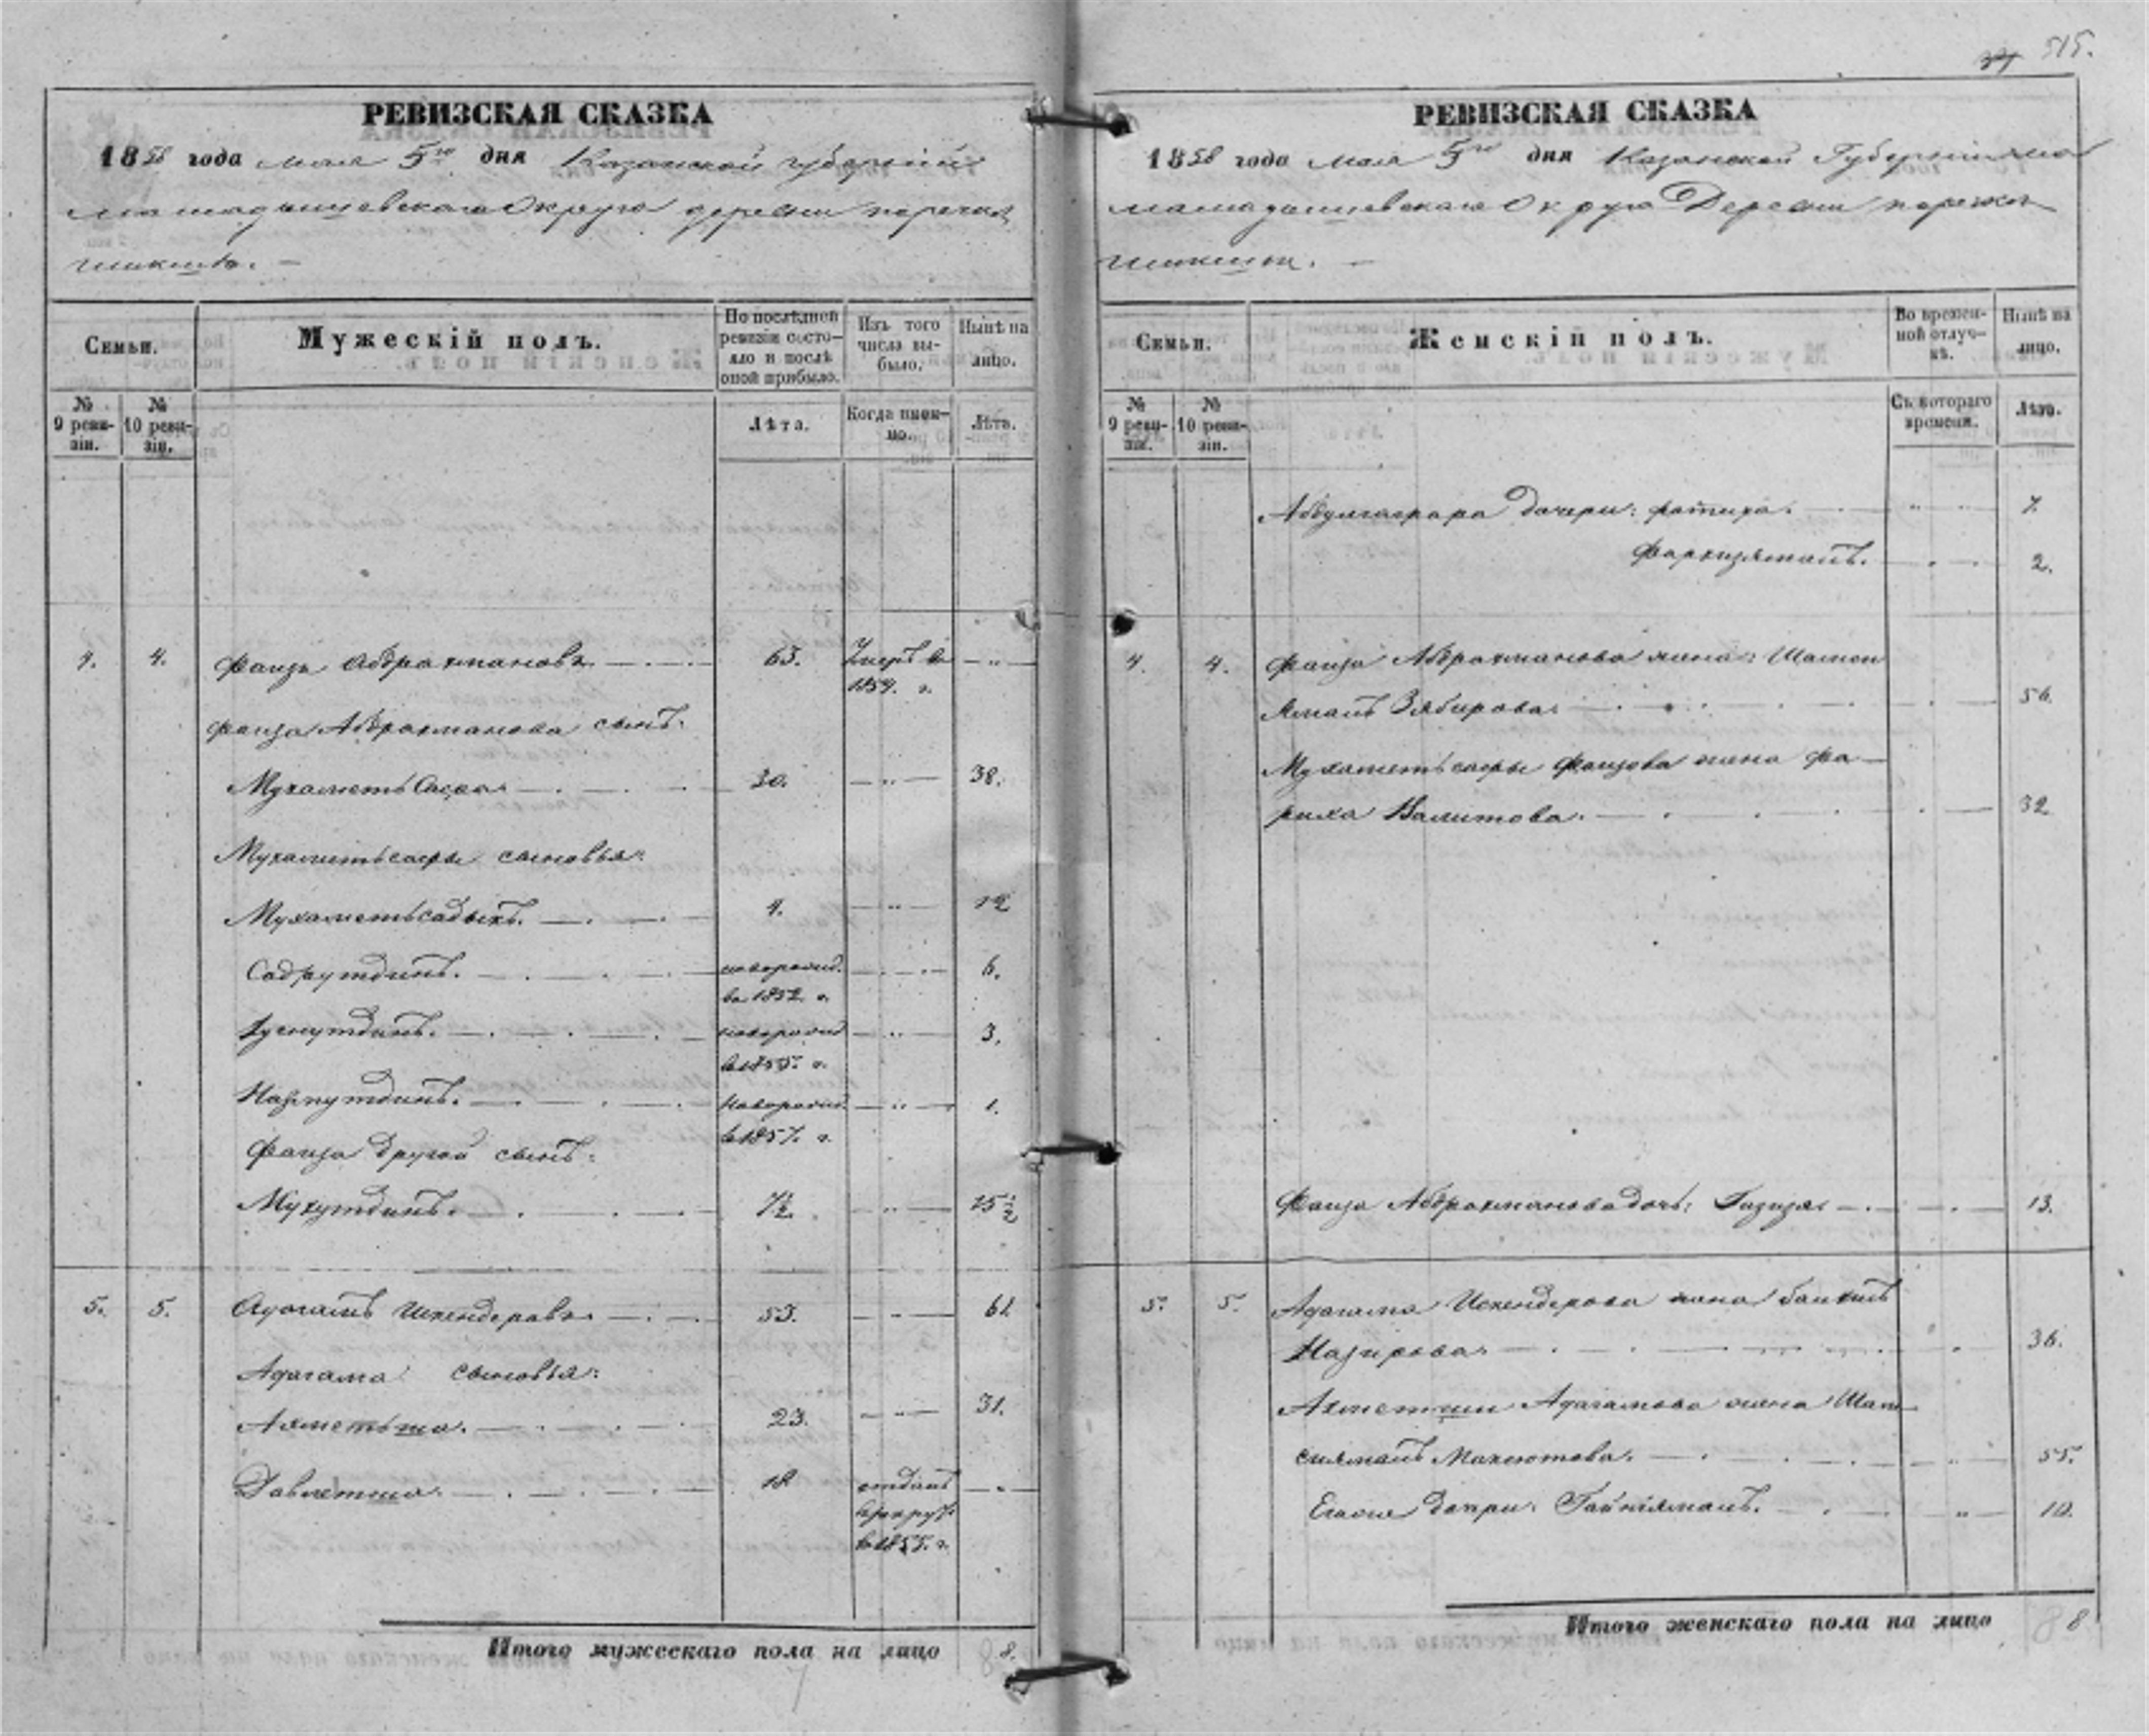 515.
РЕВИЗСКАЯ СКАЗКА
1858 года мая 5го дня Казанской губернии
мамадышевскаго Округа деревни
Семьи.
Мужескій полъ.
По послѣдней ревизіи состояло и послѣ оной прибыло.
Изъ того числа выбыло.
Нынѣ на лицо.
№ 9 ревизіи.
№ 10 ревизіи.
Лѣта.
Когда именно.
Лѣта.
4. 4. Фаизъ Абдрахмановъ 63. Умеръ въ 1854. г.
Фаиза Абдрахманова сынъ:
Мухаметь Сафа 30. 38.
Мухаметьсафы сыновья:
Мухаметьсадыкъ. 4. 12
Садрутдинъ. новорожд. въ 1852 г. 6.
Хуснутдинъ. новорожд. въ 1855. г. 3.
Назмутдинъ. новорожд. въ 1857. г. 1.
Фаиза другой сынъ:
Мухутдинъ. 7½. 15½
5. 5. Адагамъ Искендеровъ 53. 61.
Адагама сыновья:
Ахметьша. 23. 31.
Давлетша. 18 отданъ въ рекруты въ 1855. г.
Итого мужескаго пола на лицо 8.
РЕВИЗСКАЯ СКАЗКА
1858 года мая 5го дня Казанской Губерніи
мамадышевскаго Округа Деревни
Семьи.
Женскій полъ.
Во временной отлучкѣ.
Нынѣ на лицо.
№ 9 ревизіи.
№ 10 ревизіи.
Съ котораго времени.
Лѣта.
Абдулгафара дочери: фатиха. 7.
Фархизяманъ. 2.
4. 4. Фаиза Абдрахманова жена: Шамси
Яманъ Зябирова. 56.
Мухаметьсафы Фаизова жена Фа-
риха Валитова. 32
Фаиза Абдрахманова дочь: Газизя 13.
5. 5. Адагама Искендерова жена
Назирова 36.
Ахметши Адагамова жена Шам-
сиямалъ Максютова. 55.
Егоже дочери: Гайниямалъ. 10.
Итого женскаго пола на лицо 8